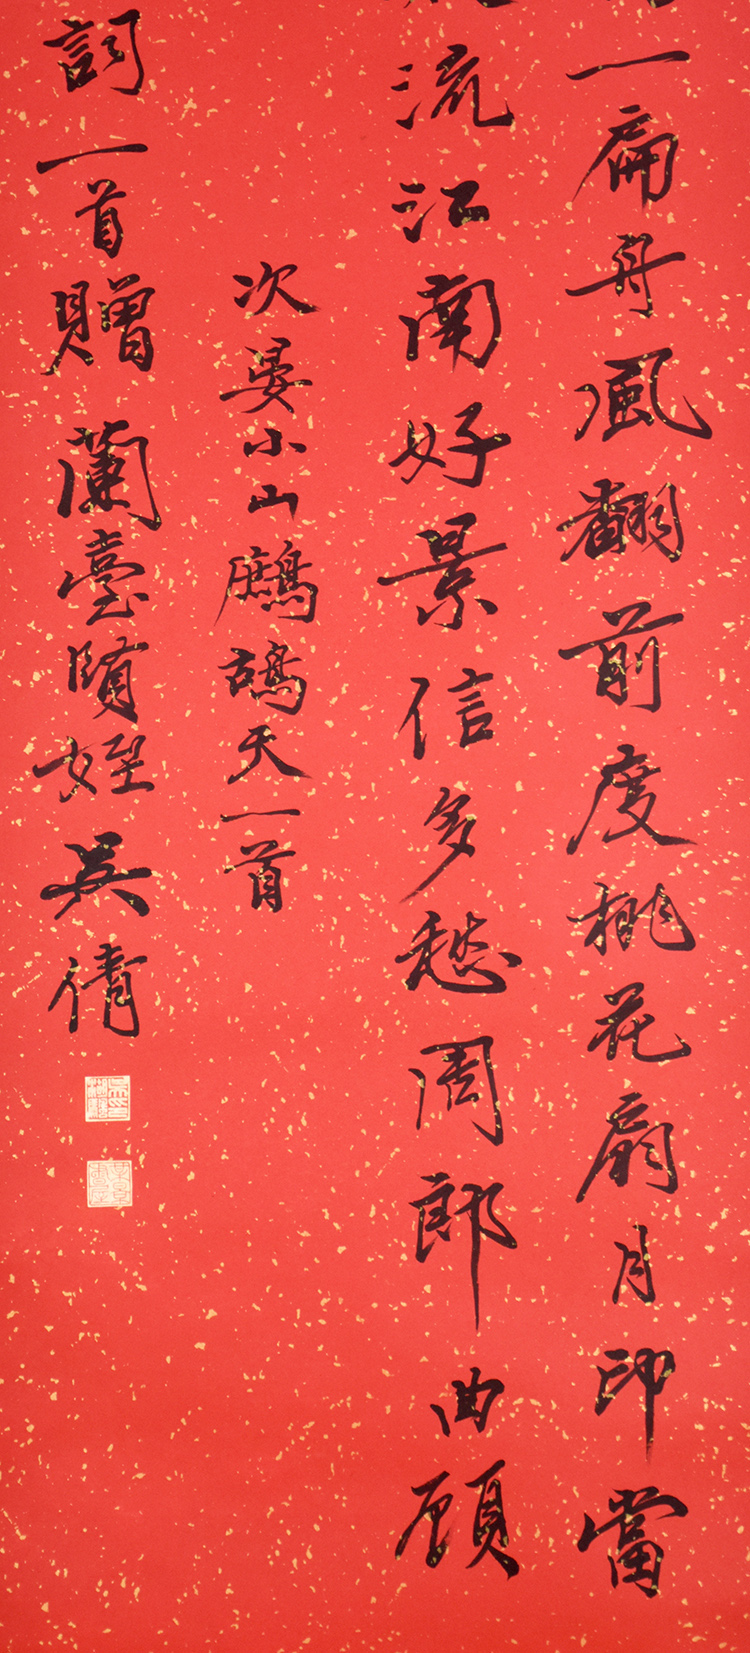 一扁舟風翻前度桃花扇月印當
流江南好景信多愁周郎曲顧
次晏小山鷓鴣天一首
詞一首贈蘭臺賢姪吳倩